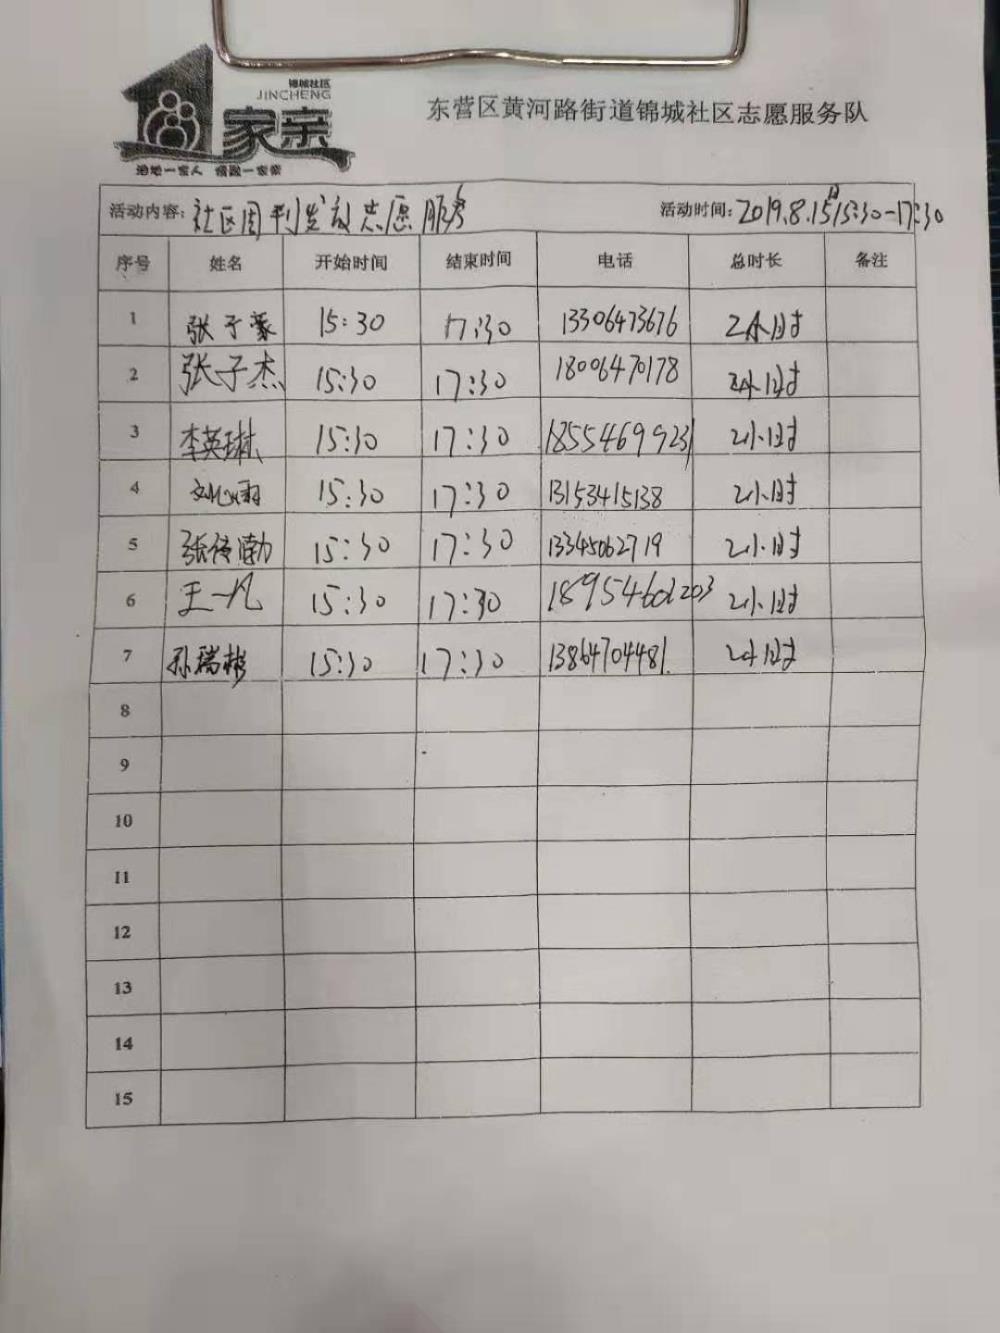 锦城社区
JINCHENG
家亲
东营区黄河路街道锦城社区志愿服务队
活动内容: 社区周刊发放志愿服务 活动时间: 2019.8.15日15:30-17:30
序号 姓名 开始时间 结束时间 电话 总时长 备注
1 张子豪 15:30 17:30 13306473676 2小时
2 张子杰 15:30 17:30 18006470178 2小时
3 李英琳 15:30 17:30 18554699231 2小时
4 刘心雨 15:30 17:30 13153415138 2小时
5 张 勃 15:30 17:30 13345062719 2小时
6 王一凡 15:30 17:30 18954601203 2小时
7 孙瑞彬 15:30 17:30 13864704481 2小时
8
9
10
11
12
13
14
15